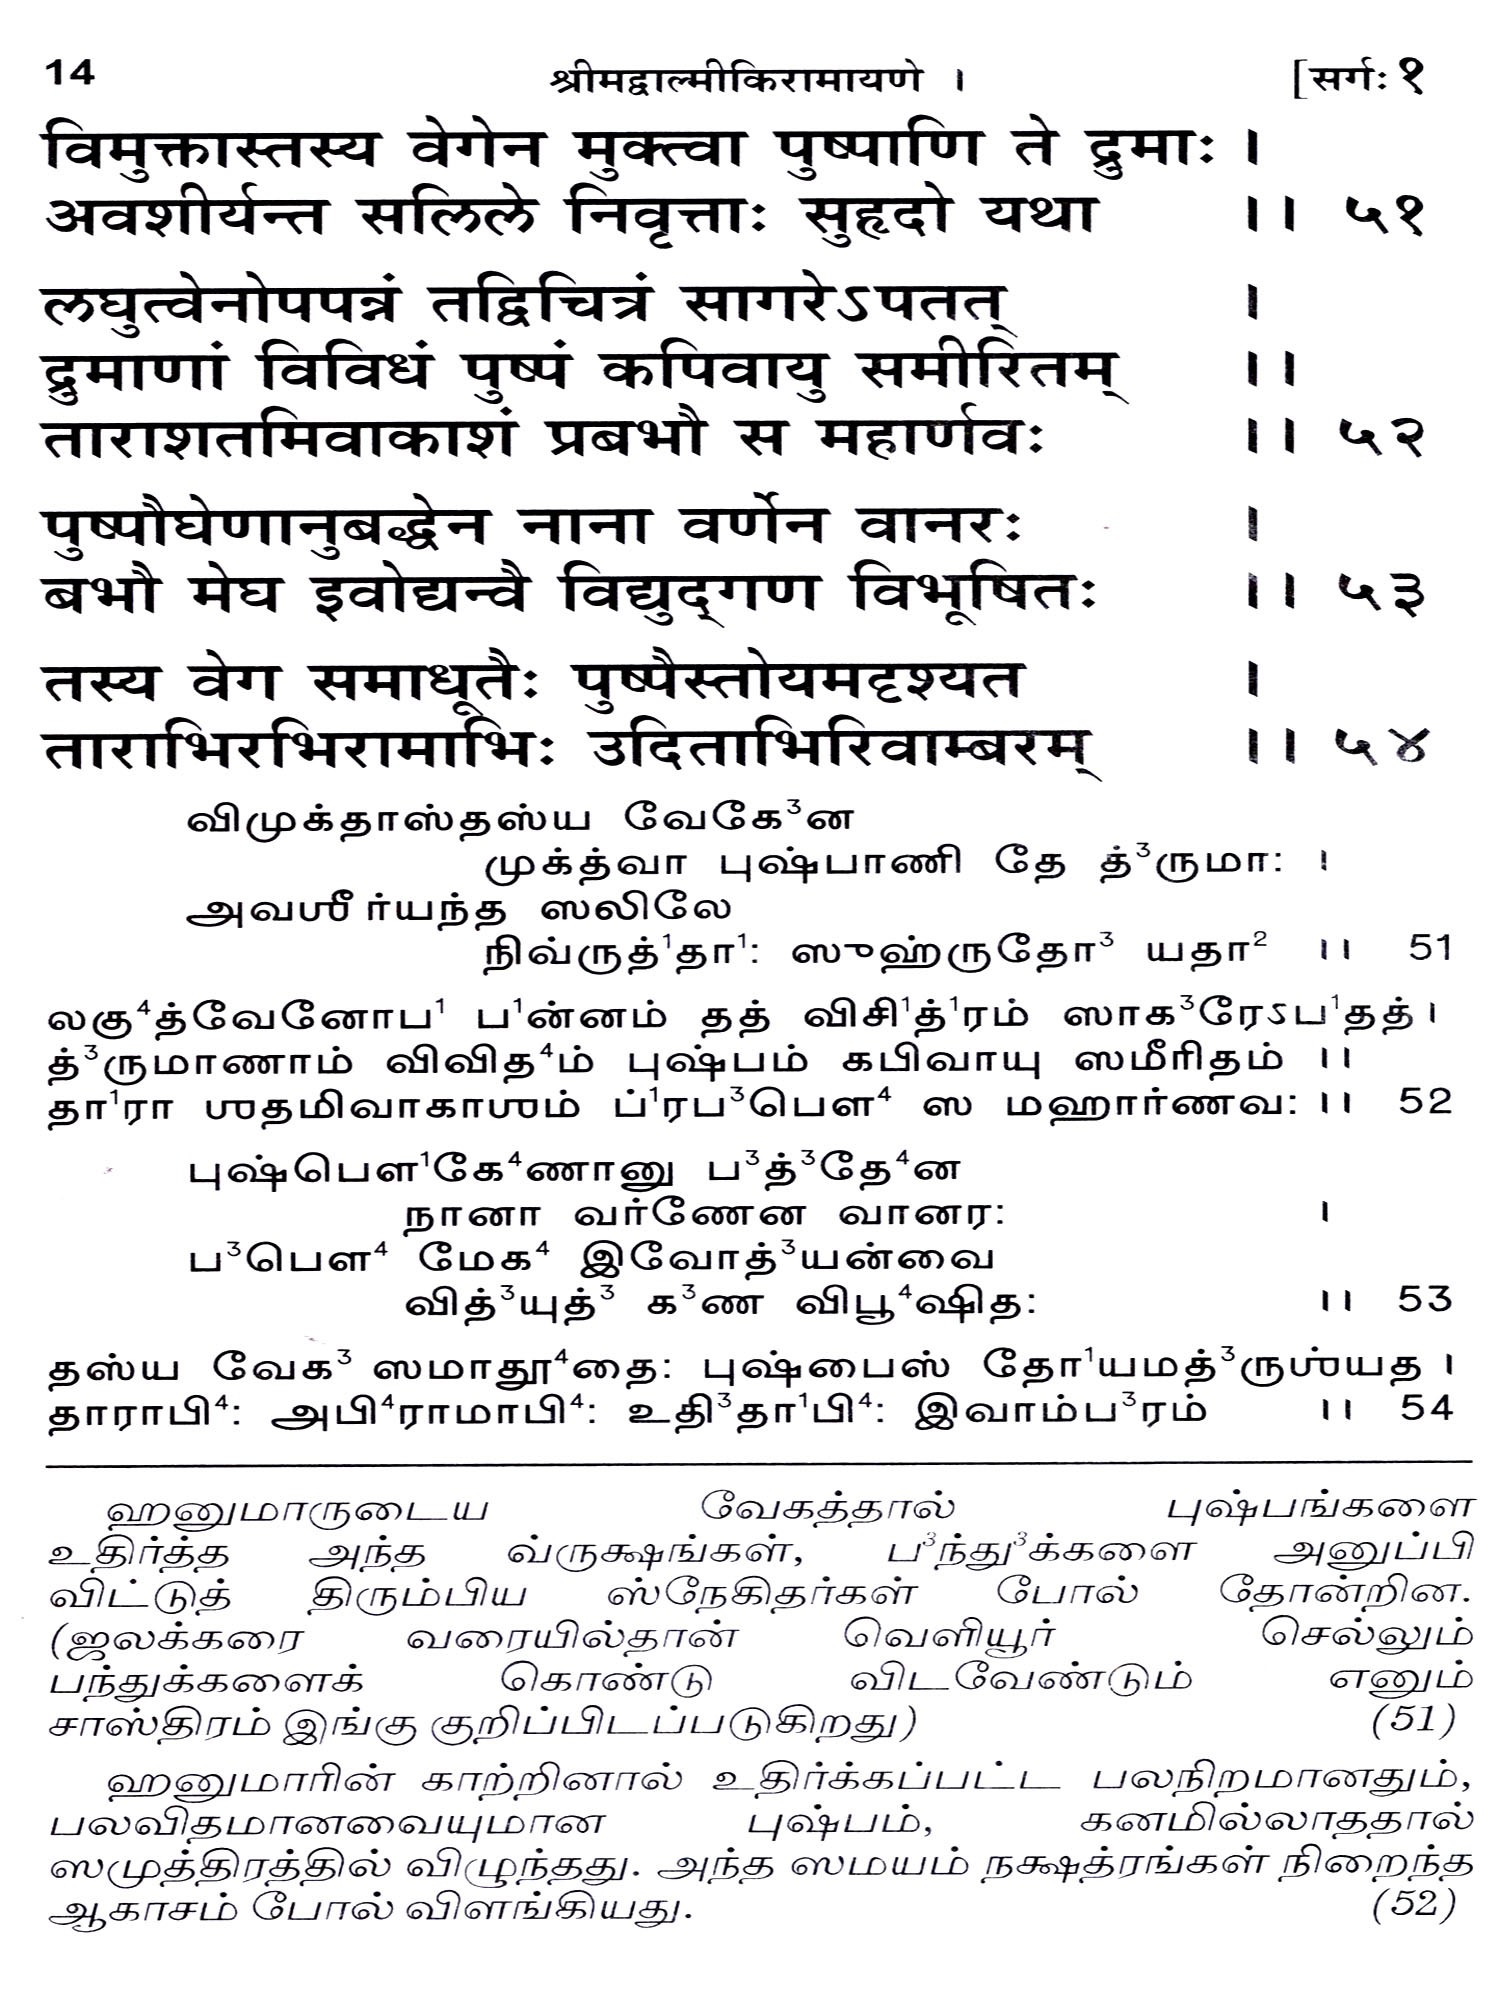 14 श्रीमद्वाल्मीकिरामायणे । [सर्गः १
विमुक्तास्तस्य वेगेन मुक्त्वा पुष्पाणि ते द्रुमाः ।
अवशीर्यन्त सलिले निवृत्ताः सुहृदो यथा ।। ५१
लघुत्वेनोपपन्नं तद्विचित्रं सागरेऽपतत् ।
द्रुमाणां विविधं पुष्पं कपिवायु समीरितम् ।।
ताराशतमिवाकाशं प्रबभौ स महार्णवः ।। ५२
पुष्पौघेणानुबद्धेन नाना वर्णेन वानरः ।
बभौ मेघ इवोद्यन्वै विद्युद्गण विभूषितः ।। ५३
तस्य वेग समाधूतैः पुष्पैस्तोयमदृश्यत ।
ताराभिरभिरामाभिः उदिताभिरिवाम्बरम् ।। ५४
விமுக்தாஸ்தஸ்ய வேகே³ன
முக்த்வா புஷ்பாணி தே த்³ருமா: ।
அவஶீர்யந்த ஸலிலே
நிவ்ருத்¹தா¹: ஸுஹ்ருதோ³ யதா² ।। 51
லகு⁴த்வேனோப¹ ப¹ன்னம் தத் விசி¹த்¹ரம் ஸாக³ரேऽப¹தத் ।
த்³ருமாணாம் விவித⁴ம் புஷ்பம் கபிவாயு ஸமீரிதம் ।।
தா¹ரா ஶதமிவாகாஶம் ப்¹ரப³பௌ⁴ ஸ மஹார்ணவ: ।। 52
புஷ்பௌ¹கே⁴ணானு ப³த்³தே⁴ன
நானா வர்ணேன வானர: ।
ப³பௌ⁴ மேக⁴ இவோத்³யன்வை
வித்³யுத்³ க³ண விபூ⁴ஷித: ।। 53
தஸ்ய வேக³ ஸமாதூ⁴தை: புஷ்பைஸ் தோ¹யமத்³ருஶ்யத ।
தாராபி⁴: அபி⁴ராமாபி⁴: உதி³தா¹பி⁴: இவாம்ப³ரம் ।। 54
ஹனுமாருடைய வேகத்தால் புஷ்பங்களை
உதிர்த்த அந்த வ்ருக்ஷங்கள், ப³ந்து³க்களை அனுப்பி
விட்டுத் திரும்பிய ஸ்நேகிதர்கள் போல் தோன்றின.
(ஜலக்கரை வரையில்தான் வெளியூர் செல்லும்
பந்துக்களைக் கொண்டு விடவேண்டும் எனும்
சாஸ்திரம் இங்கு குறிப்பிடப்படுகிறது) (51)
ஹனுமாரின் காற்றினால் உதிர்க்கப்பட்ட பலநிறமானதும்,
பலவிதமானவையுமான புஷ்பம், கனமில்லாததால்
ஸமுத்திரத்தில் விழுந்தது. அந்த ஸமயம் நக்ஷத்ரங்கள் நிறைந்த
ஆகாசம் போல் விளங்கியது. (52)